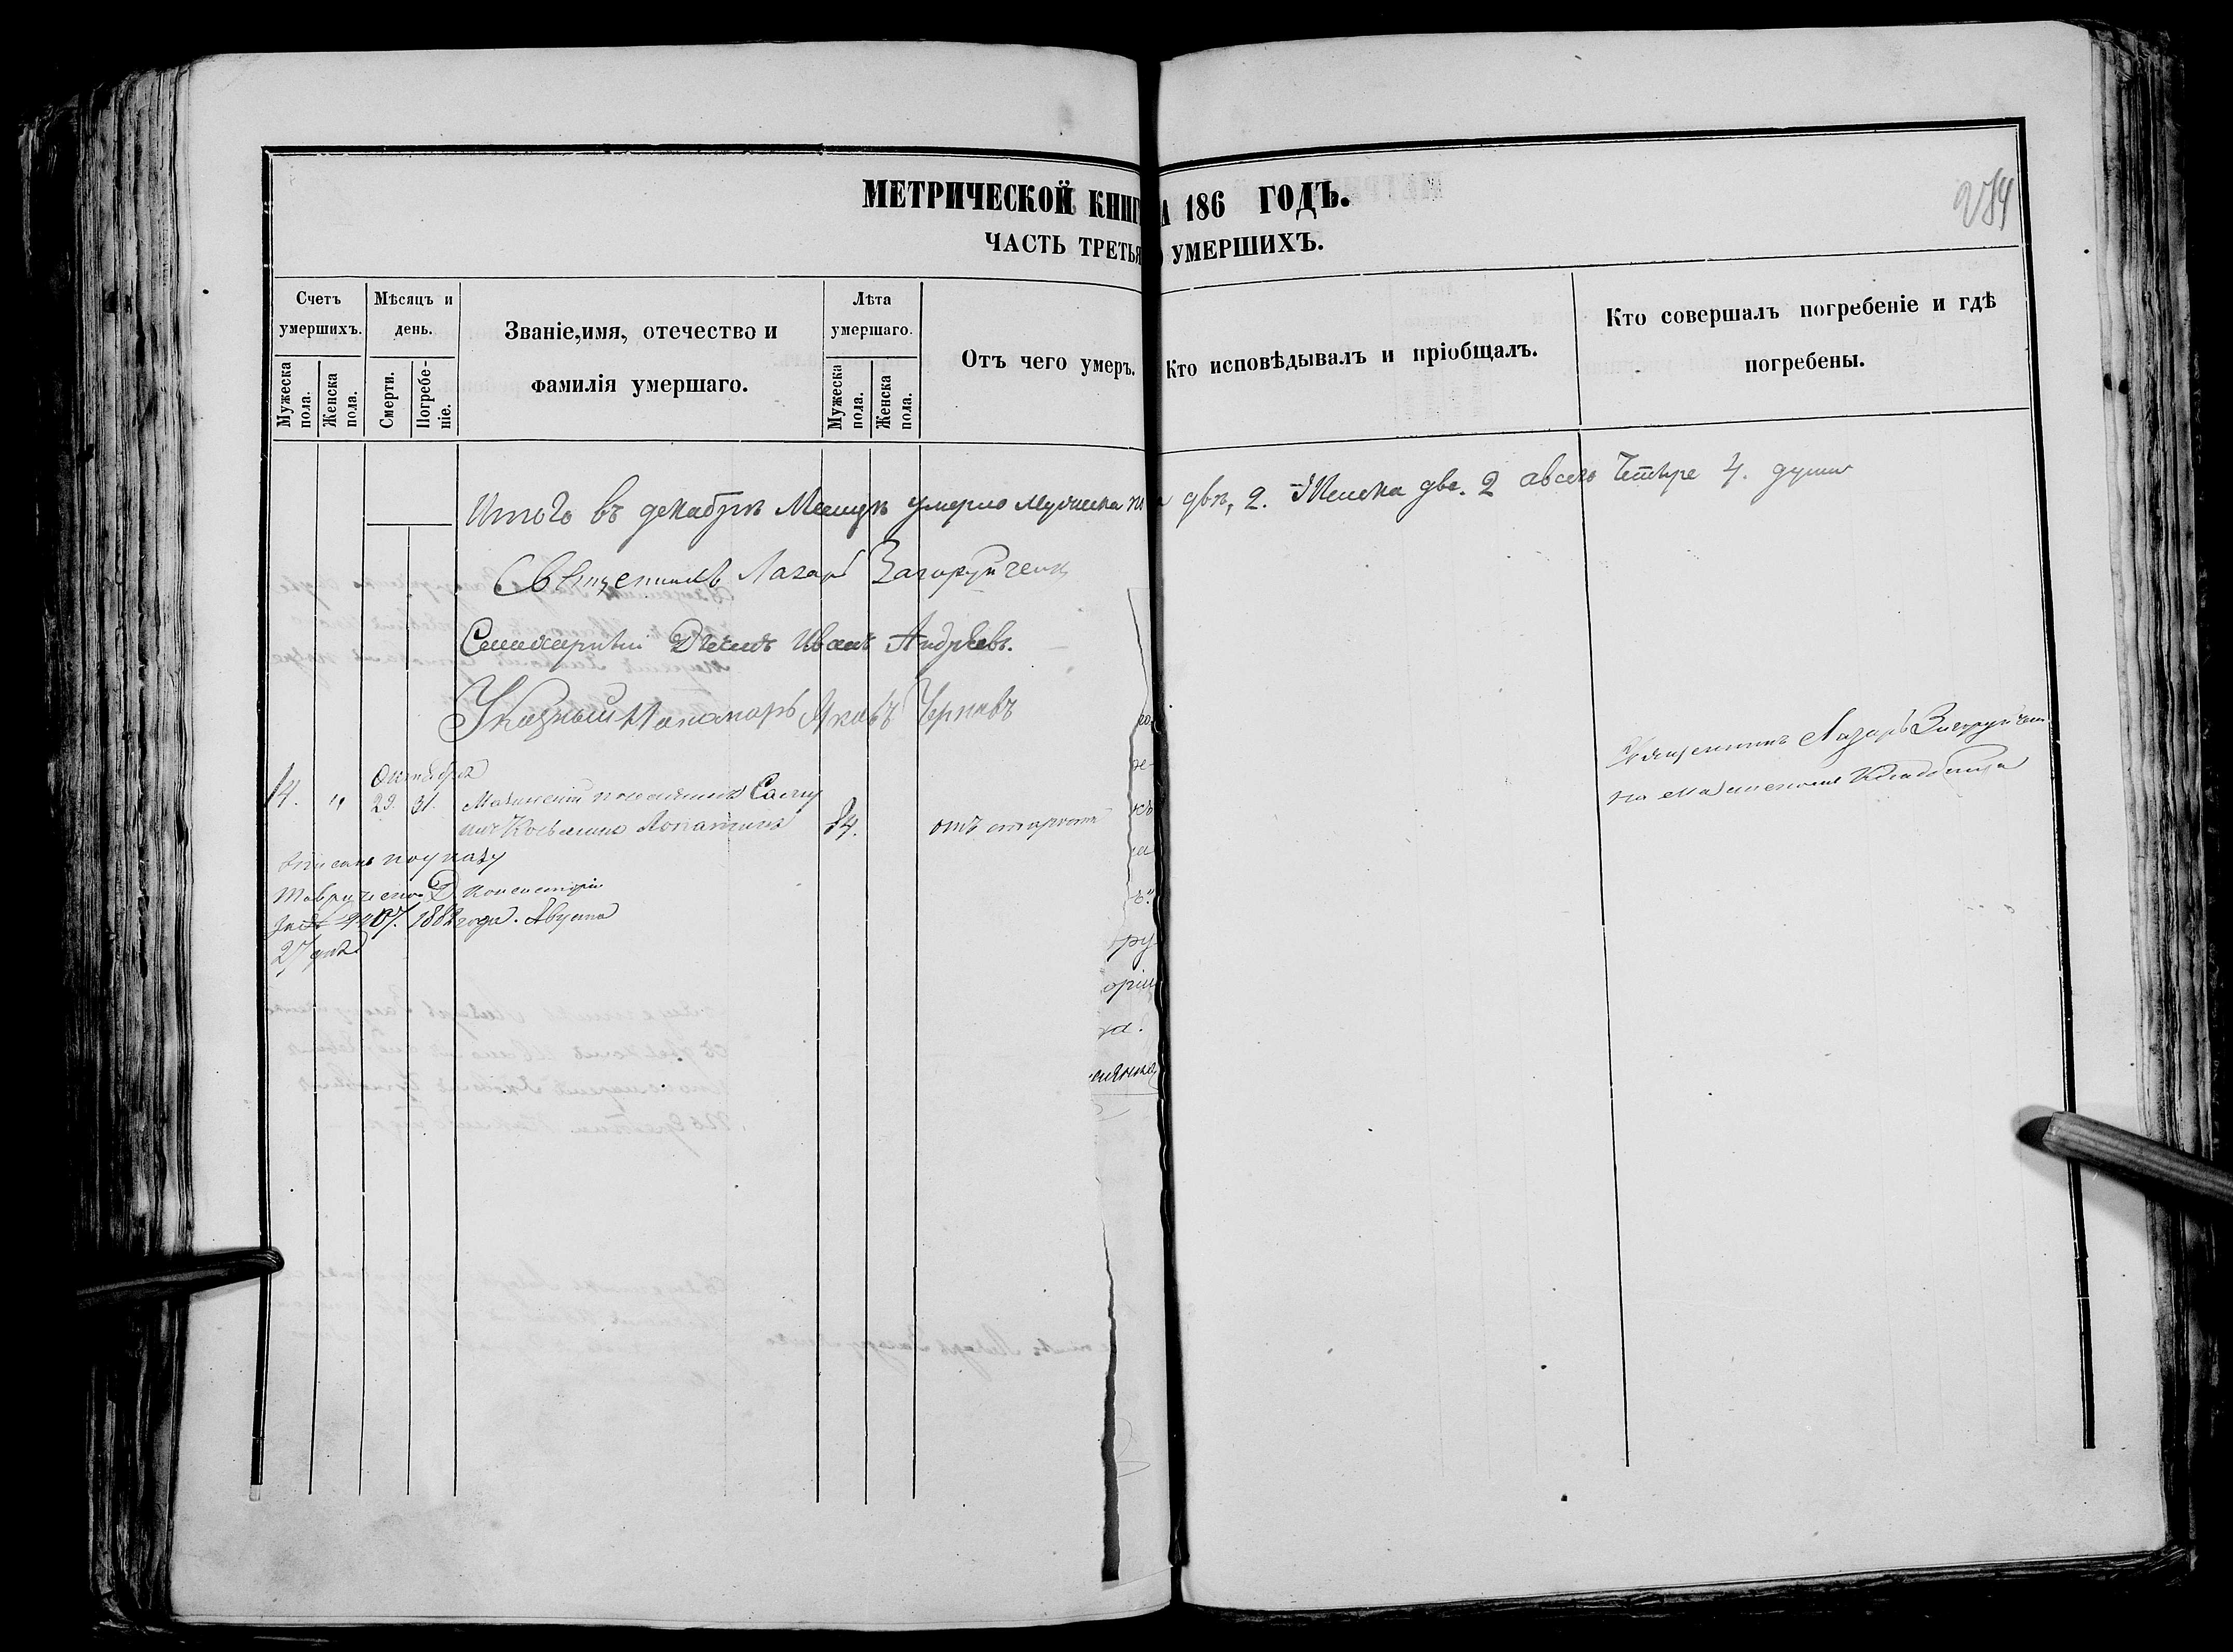 МЕТРИЧЕСКОЙ КНИГ А 186 ГОДЪ.
284
ЧАСТЬ ТРЕТЬЯ УМЕРШИХЪ.
Счетъ умершихъ.
Мужеска пола.
Женска пола.
Мѣсяцъ и день.
Смерти.
Погребеніе.
Званіе,имя, отечество и фамилія умершаго.
Лѣта умершаго.
Мужеска пола.
Женска пола.
Отъ чего умеръ.
Кто исповѣдывалъ и пріобщалъ.
Кто совершалъ погребеніе и гдѣ погребены.
Итого въ декабрѣ Месицѣ умерло Мужеска п а двѣ, 2. Женска две. 2 авсего Четыре 4. души
Священникъ Лазарь Загоруйченко
Дьякъ Иванъ Андреевъ.
Указный Пономарь Яковъ Черновъ
Октября
14. " 29. 31. поселянинъ
Лопатинъ 84. отъ старости
Священникъ Лазарь Загоруйчен
на кладбище
Вписанъ по указу
Таврической Д Консисторіи
за № 1882 года. Августа
27 дня